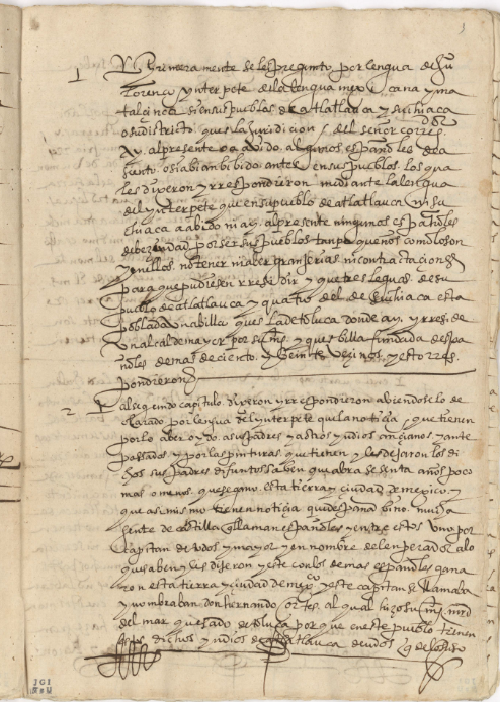 3
1 Primeramente se les pregunto por lengua de Ju°
Lorenço ynterpete dela lengua mexicana y ma
talcinca si en sus pueblos de atlatlauca y suchiaca
o su districto ques la juridicion del señor corre
ay al presente o a avido algunos españoles de a
siento o si abian bibido antes en sus pueblos los qua
les dixeron y rrespondieron mediante la lengua
del ynterpete que en su pueblo de atlatlauca ni su
chiaca a abido ni ay al presente ningunos españoles
de bezindad por ser sus pueblos tan pequeños como lo son
y en ellos no tener ni aber granjerias ni contractaciones
para que pudiesen rresedir y que tres leguas de su
pueblo de atlatlauca y quatro del de suchiaca esta
poblada una billa ques la de toluca donde ay y rreside
un alcalde mayor por su mg y ques billa fundada despa
ñoles de mas de ciento y beinte vezinos y esto rres
pondieron
2 al segundo capitulo dixeron y rrespondieron abiendoselo de
clarado por lengua del ynterpete que la noticia que tienen
por lo aber oydo a sus padres y a otros yndios ancianos y ante
passados y por las pinturas que tienen y les dejaron los di
chos sus padres difuntos saben que abra sesenta años poco
mas o menos que se gano esta tierra y ciudad de mexico y
que asimismo tienen noticia que despaña bino mucha
gente de castilla que llaman españoles y entre estos uno por
capitan de todos y mayor y en nombre del enperador a lo
que saben y les dixeron y este con los demas españoles gana
ron esta tierra y ciudad de mexco y este capitan se llamaba
y nombraban don hernando cortes al qual hizo su mg
del mar ques ado de toluca porque en este pueblo tienen
estos dichos yndios de atlatlauca deudos